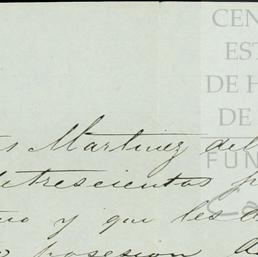 CEN
EST
DE H
DE
FUN
Ca
s Martinez del
trescientos p
y que les
posesion